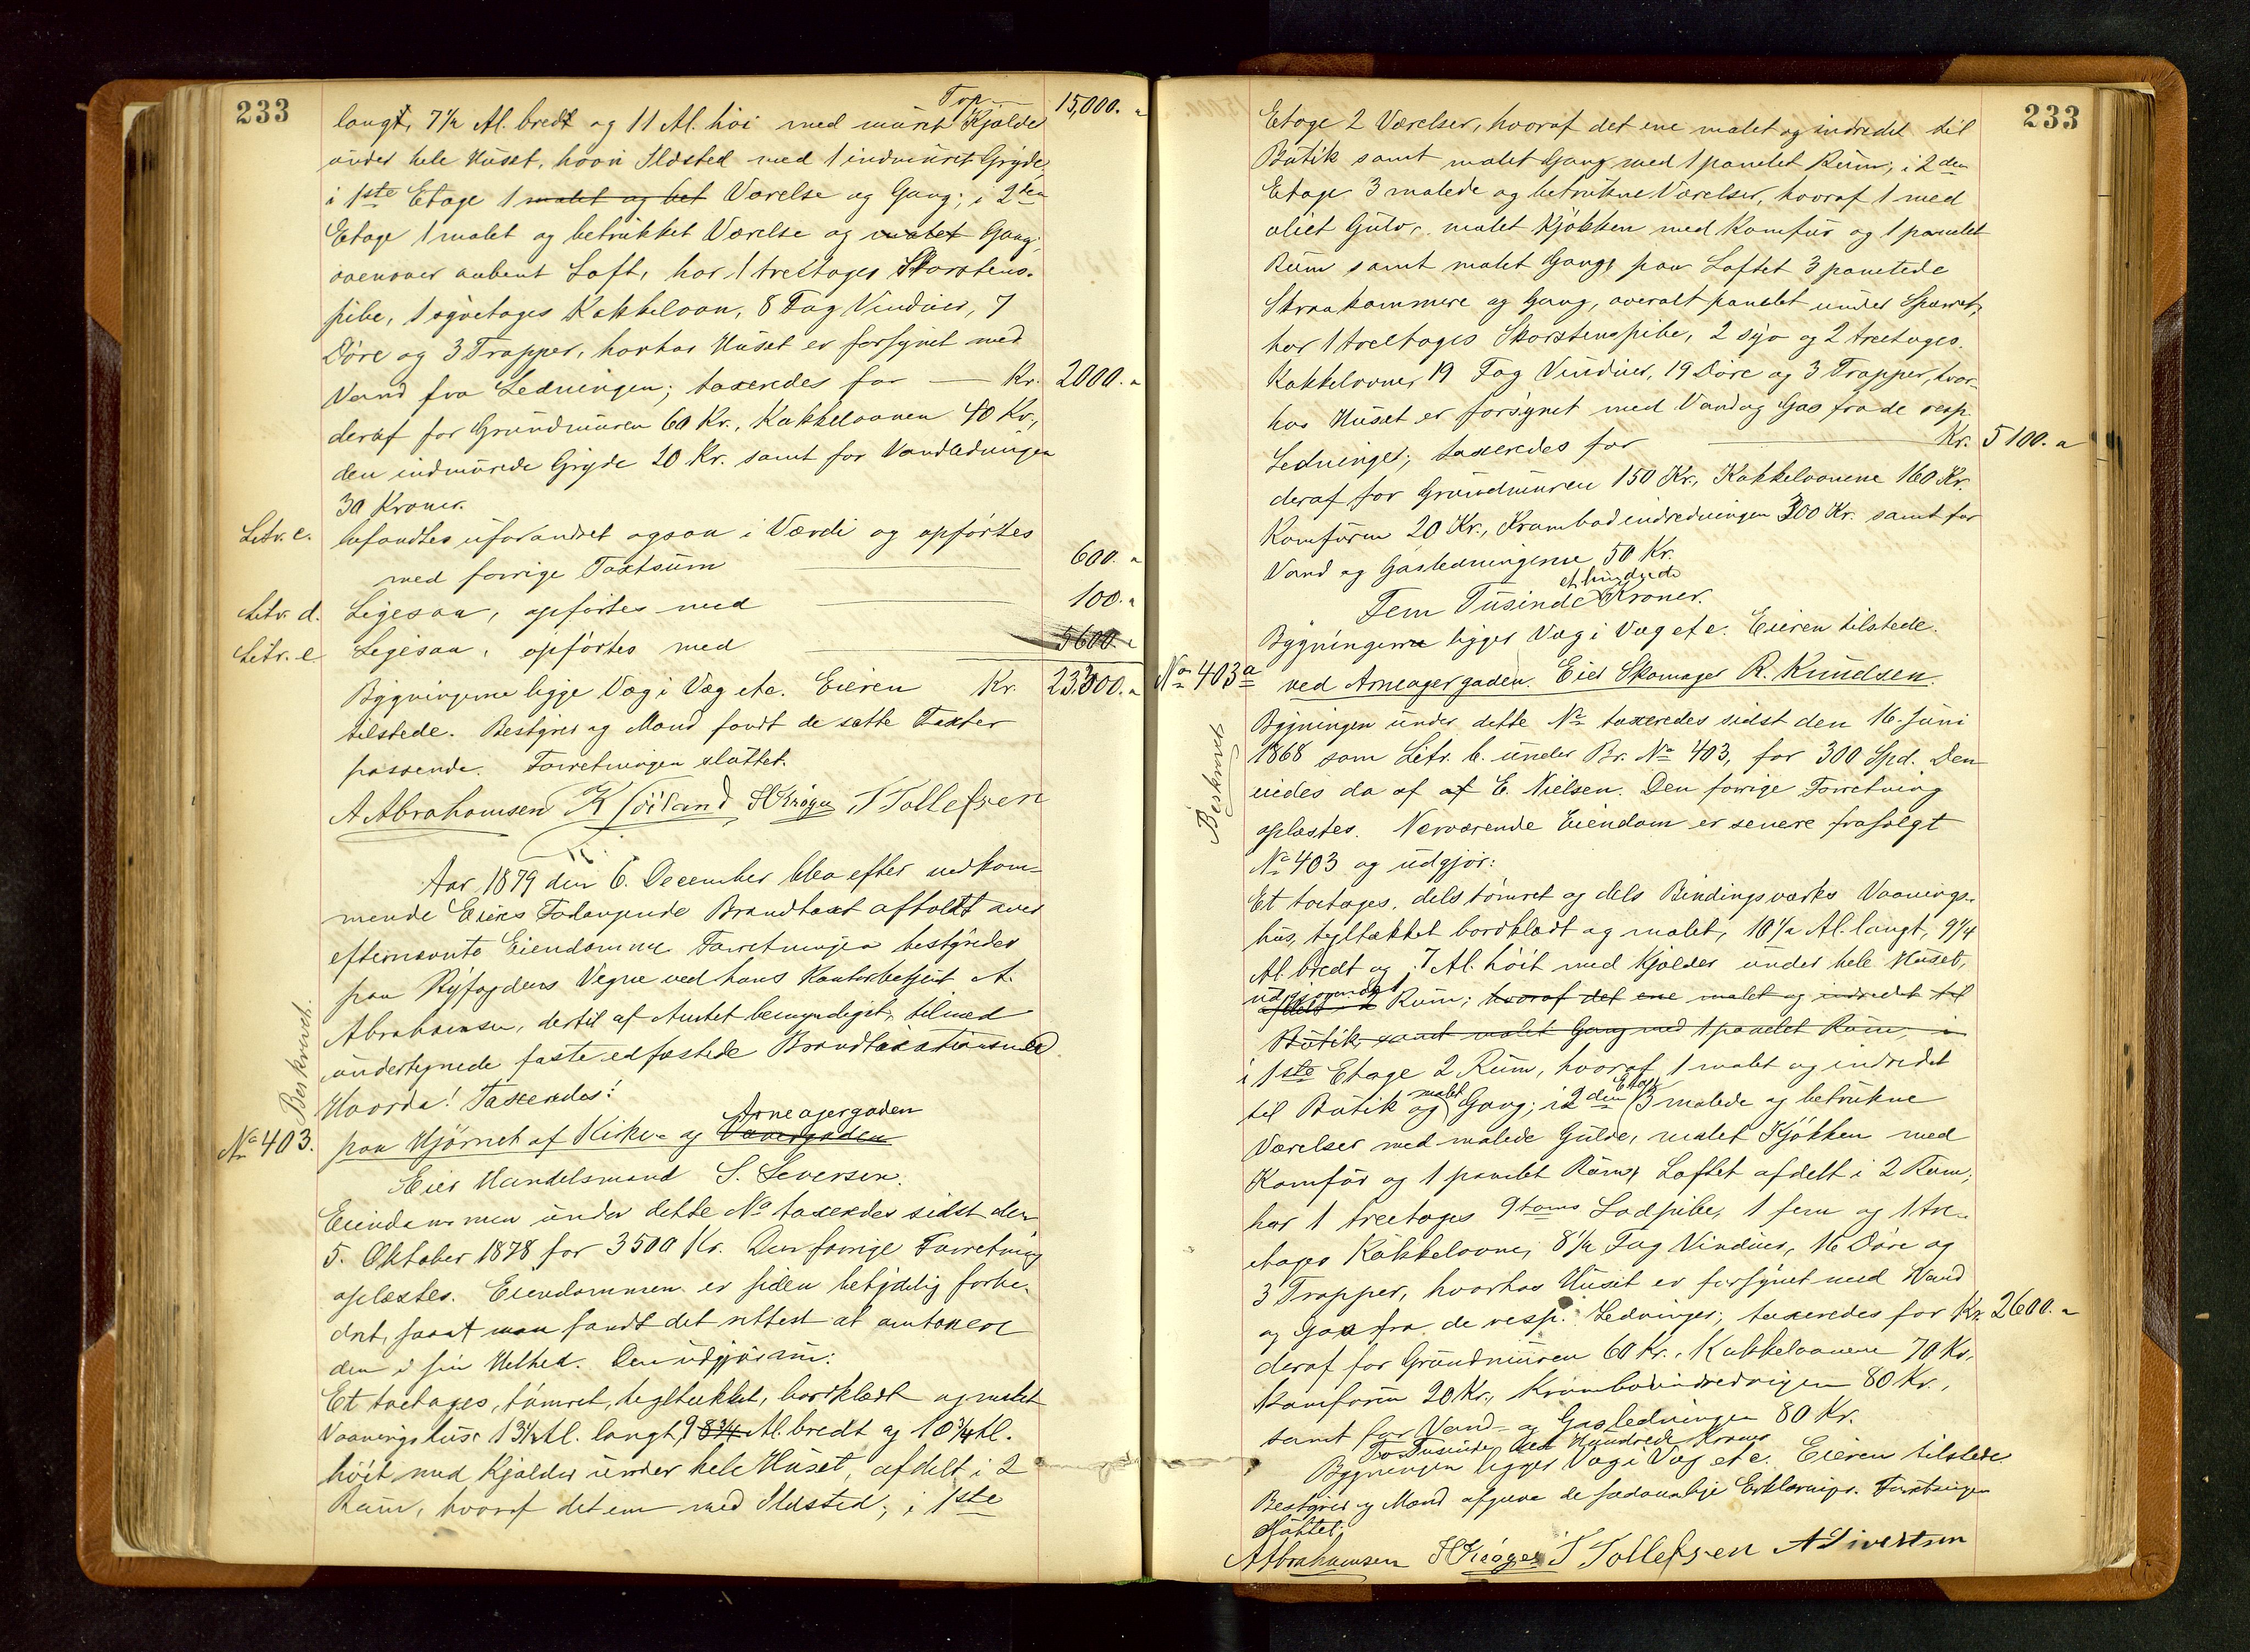 233
Top 15,000. "
langt, 7½ Al. bredt og 11 Al. høi med müret Kjælder
under hele Huset, hvori Ildsted med 1 indmüret Gryde,
i 1ste Etage 1 malet og bet Værelse og Gang; i 2den
Etage 1 malet og betrükket Værelse og malet Gang;
ovenover aabent Loft, har 1 treetages Skorstens-
pibe, 1 Kakkelovn, 8 Fag Vindüer, 7
Döre og 3 Trapper, hvorhos Huset er forsÿnet med
Vand fra Ledningen; taxeredes for — Kr. 2000. "
deraf for Gründmüren 60 Kr., Kakkelovnen 40 Kr.,
den indmürede Grÿde 20 Kr. samt for Vandledningen
30 Kroner.
Litr. c. befandtes üforandret ogsaa i Værdi og opförtes
med forrige Taxtsüm — 600. "
Litr. d. Ligesaa, opförtes med — 100. "
Litr. e. Ligesaa, opförtes med 5600. "
Bÿgningerne ligge Væg i Væg etc. Eieren Kr. 23300. "
tilstede. Bestÿrer og Mænd fandt de satte Taxter
passende. Forretningen slüttet.
A Abrahamsen K Töiland H Krøger T Tollefsen
Aar 1879 den 6. December blev efter vedkom-
mende Eieres Forlangende Brandtaxt afholdt over
efternævnte Eiendomme. Forretningen bestÿredes
paa Bÿfogdens Vegne ved hans Kontorbetjent A.
Abrahamsen, dertil af Amtet bemyndiget, tilmed
undertegnede faste edfæstede Brandtaxationsmænd.
Hvorda! Taxeredes:
Beskrevet.
Arneagergaden
No 403. paa Hjörnet af Kirke- og
Eier Handelsmand S. Seversen.
Eiendommen ünder dette No taxeredes sidst den
5. Oktober 1878 for 3500 Kr. Den forrige Forretning
oplæstes. Eiendommen er siden betÿdelig forbe-
dret, saa at man fandt det rettest at omtaxere
den i sin Helhed. Den üdgjör nü:
Et toetages, tömret, tegltækket, bordklædt og malet
Vaaningshüs, 13½ Al. langt, 9 8¾ Al. bredt og 10¾ Al.
höit med Kjælder ünder hele Hüset, afdelt i 2
Rüm, hvoraf det ene med Ildsted; i 1ste
233
Etage 2 Værelser, hvoraf det ene malet og indredet til
Bütik samt malet Gang med 1 panelet Rüm; i 2den
Etage 3 malede og betrükne Værelser, hvoraf 1 med
oliet Gülv, malet Kjökken med Komfür og 1 panelet
Rüm samt malet Gang; paa Loftet 3 panelede
Skraakammere og Gang, overalt panelet ünder Sparret,
har 1 treetages Skorstenspibe, 2 og 2 treetages
Kakkelovne, 19 Fag Vindüer, 19 Döre og 3 Trapper, hvor-
hos Hüset er forsÿnet med Vand og Gas fra de resp.
Ledninger; taxeredes for — Kr. 5100. "
deraf for Gründmüren 150 Kr., Kakkelovnene 160 Kr.
Komfüren 20 Kr., Krambodindredningen 300 Kr. samt for
Vand og Gasledningerne 50 Kr.
et hundrede
Fem Tüsinde Kroner.
Bÿgningen ligger Væg i Væg etc. Eieren tilstede.
No 403a ved Arneagergaden. Eier Skomager R. Knüdsen.
Beskrevet
Bÿgningen ünder dette No taxeredes sidst den 16. Jüni
1868 som Litr. b. ünder Br. No 403, for 300 Spd. Den
eiedes da af af E. Nielsen. Den forrige Forretning
oplæstes. Nærværende Eiendom er senere frasolgt
No 403 og üdgjör:
Et toetages, dels tömret og dels Bindingsværks Vaanings-
hüs, tegltækket bordklædt og malet, 10½ Al. langt, 9¼
Al. bredt og 7 Al. höit med Kjælder ünder hele Hüset,
üdgjörende 1
afdelt i 2 Rüm; hvoraf det ene malet og indredet til
Bütik samt malet Gang med 1 panelet Rüm, i
i 1ste Etage 2 Rüm, hvoraf 1 malet og indredet
malet Etage
til Bütik og Gang; i 2den 3 malede og betrükne
Værelser med malede Gülve, malet Kjökken med
Komfür og 1 panelet Rüm, Loftet afdelt i 2 Rüm;
har 1 treetages 9toms Lodpibe, 1 fem og 1 tre-
etages Kakkelovne, 8½ Fag Vindüer, 16 Döre og
3 Trapper, hvorhos Hüset er forsÿnet med Vand
og Gas fra de resp. Ledninger; taxeredes for Kr. 2600. "
deraf for Gründmüren 60 Kr., Kakkelovnene 70 Kr.,
Komfüren 20 Kr., Krambodindredningen 80 Kr.,
samt for Vand- og Gasledningen 80 Kr.
To Tusinde, sex Hundrede Kroner
Bÿgningen ligger Væg i Væg etc. Eieren tilstede
Bestÿrer og Mænd afgave de sædvanlige Erklæringer. Forretningen
slüttet.
A Abrahamsen H Krøger T Tollefsen A Sivertsen